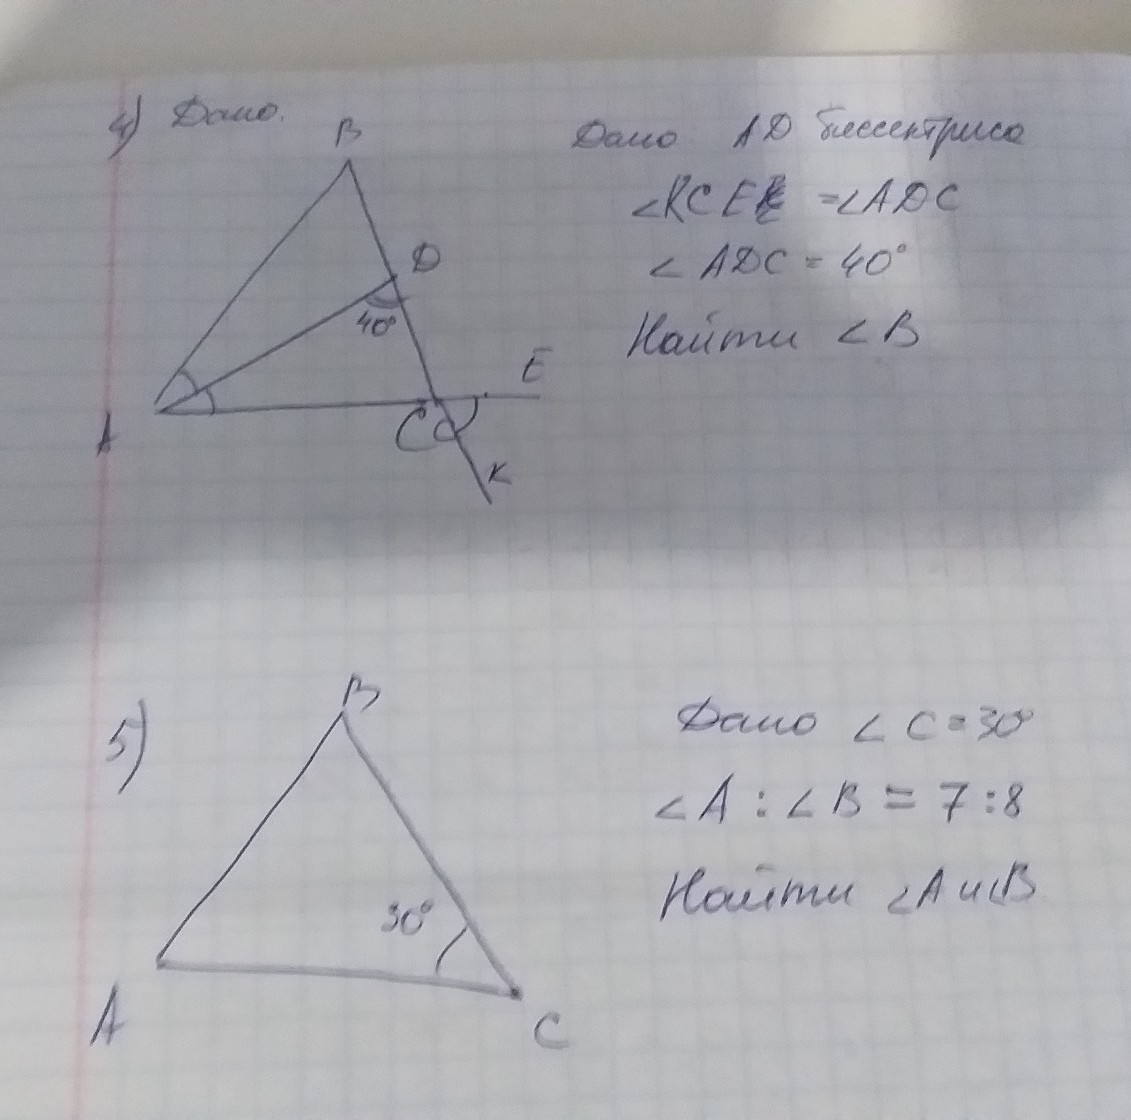 4) Дано.
B
D
40°
E
A
C
K
Дано AD биссектриса
∠KCE = ∠ADC
∠ADC = 40°
Найти ∠B
5)
B
30°
A
C
Дано ∠C = 30°
∠A : ∠B = 7 : 8
Найти ∠A и ∠B